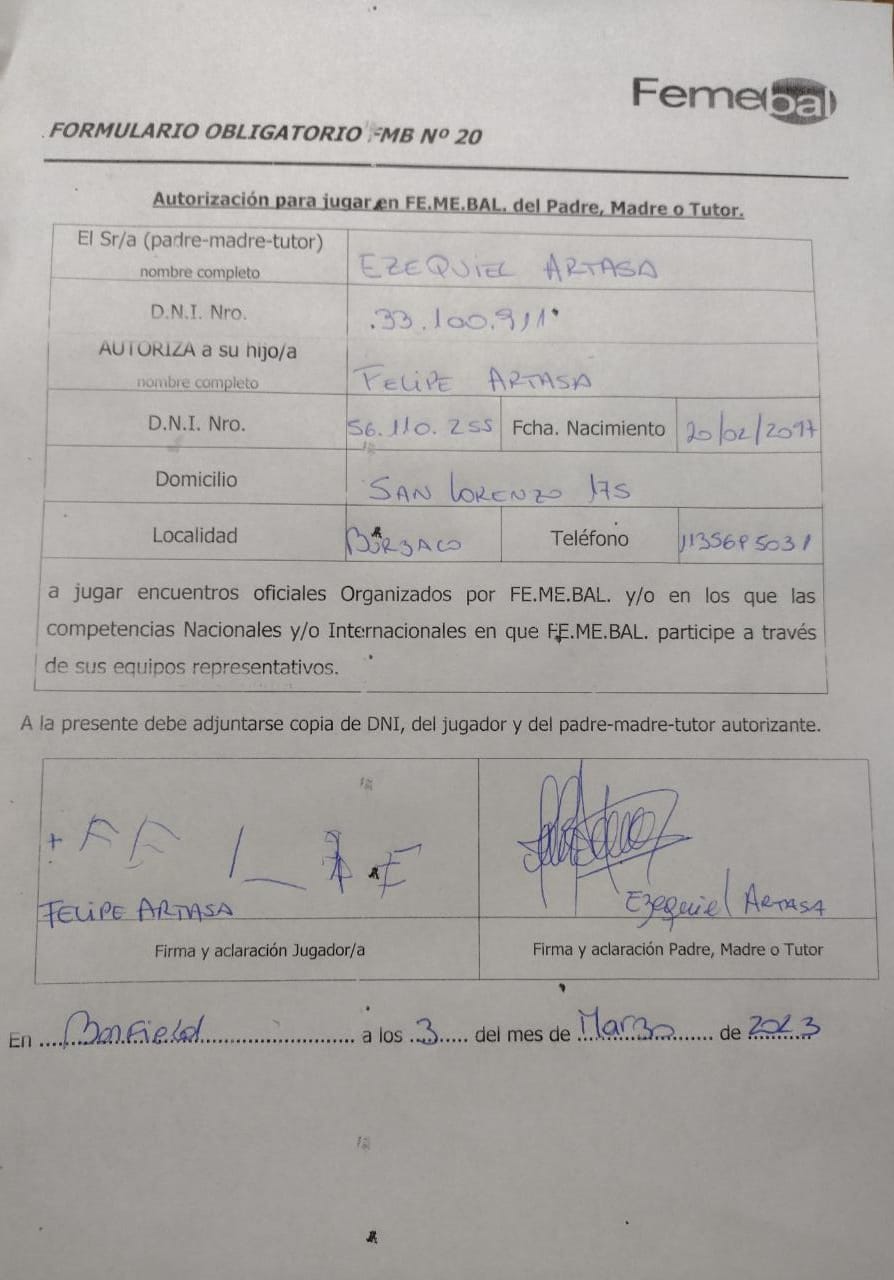 Femebal
FORMULARIO OBLIGATORIO FMB Nº 20
Autorización para jugar en FE.ME.BAL. del Padre, Madre o Tutor.
El Sr/a (padre-madre-tutor)
nombre completo
EZEQUIEL ARTASA
D.N.I. Nro.
33.100.911
AUTORIZA a su hijo/a
nombre completo
FELIPE ARTASA
D.N.I. Nro.
56.110.255
Fcha. Nacimiento
20/02/2017
Domicilio
SAN LORENZO 175
Localidad
BURZACO
Teléfono
a jugar encuentros oficiales Organizados por FE.ME.BAL. y/o en los que las
competencias Nacionales y/o Internacionales en que FE.ME.BAL. participe a través
de sus equipos representativos.
A la presente debe adjuntarse copia de DNI, del jugador y del padre-madre-tutor autorizante.
FELIPE ARTASA
Ezequiel ARTASA
Firma y aclaración Jugador/a
Firma y aclaración Padre, Madre o Tutor
En Banfield a los 3 del mes de Marzo de 2023